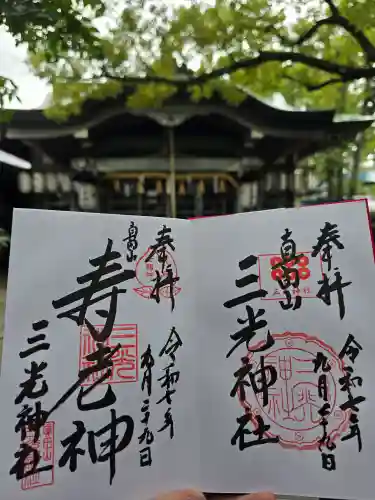 奉拝
令和七年
九月二十九日
真田山
三光神社
奉拝
令和七年
九月二十九日
真田山
寿老神
三光神社